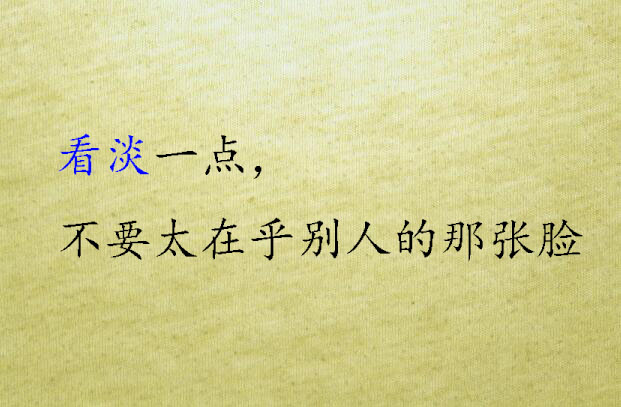 看淡一点，
不要太在乎别人的那张脸